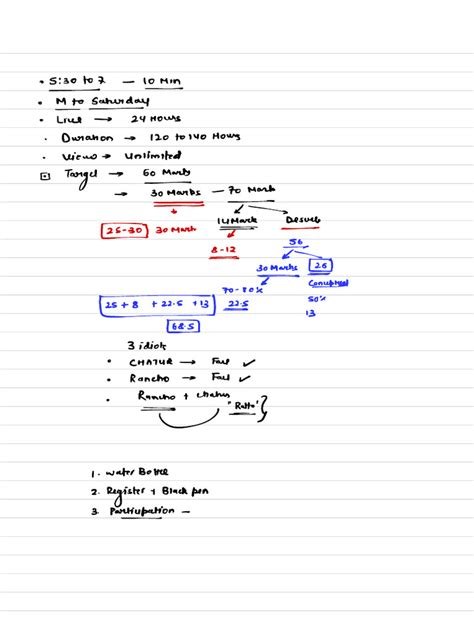 • 5:30 to 7 — 10 Min
• M to Saturday
• Live → 24 Hours
• Duration → 120 to 140 Hours
• Views → Unlimited
Target → 60 Marks
→ 30 Marks — 70 Mark
25-30 30 Mark 14 Mark
8-12 56
30 Marks 26
70-80% Conceptual
25 + 8 + 22.5 + 13 22.5 50%
13
68.5
3 idiot
• CHATUR → Fail ✓
• Rancho → Fail ✓
• Rancho + Chatur
"Ratta"
1. Water Bottle
2. Register + Black pen
3. Participation —